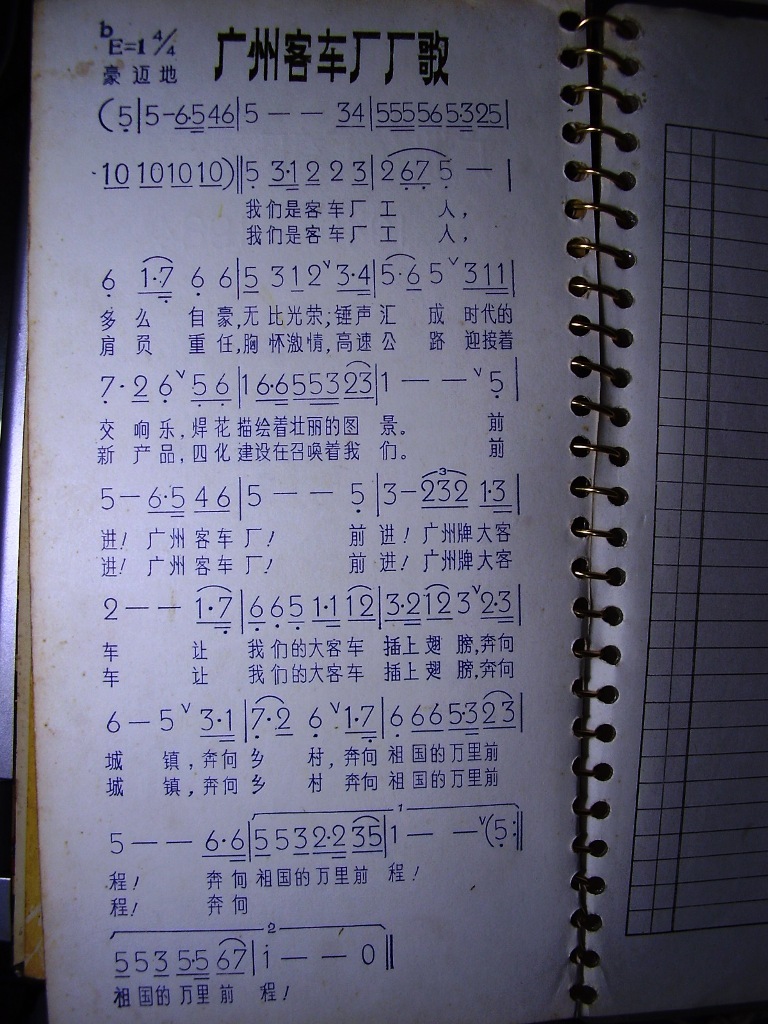 ᵇE=1 4/4 广州客车厂厂歌
豪迈地
(5|5-6·546|5 — — 34|555565·325|
10 101010)‖5 3·1 2 2 3|2 67 5 — |
我们是客车厂 工 人,
我们是客车厂 工 人,
6 1·7 6 6|5 3 1 2ᵛ3·4|5·6 5 ᵛ311|
多 么 自 豪,无 比光荣;锤声汇 成 时代的
肩 负 重 任,胸 怀激情,高速公 路 迎接着
7· 2 6ᵛ5 6|16·655323|1 — — ᵛ5|
交 响 乐, 焊 花 描绘着壮丽的图 景。 前
新 产 品, 四 化 建设在召唤着我 们。 前
5 — 6·5 4 6|5 — — 5|3 — 232 1·3|
进! 广 州 客 车 厂! 前 进! 广州牌大客
进! 广 州 客 车 厂! 前 进! 广州牌大客
2 — — 1·7|6 6 5 1·1 12|3·2 12 3ᵛ2·3|
车 让 我们的大客车 插上翅 膀,奔向
车 让 我们的大客车 插上翅 膀,奔向
6 — 5 ᵛ3·1|7·2 6ᵛ1·7|6 6 6 5·3 2 3|
城 镇,奔向 乡 村, 奔向 祖 国的万里前
城 镇,奔向 乡 村 奔向 祖 国的万里前
1
5 — — 6·6|5 5 3 2·2 35|1 — — ᵛ(5:‖
程! 奔 向 祖国的万里前 程!
程! 奔 向
2
5 5 3 5·5 67|i — — 0‖
祖 国的 万 里 前 程!